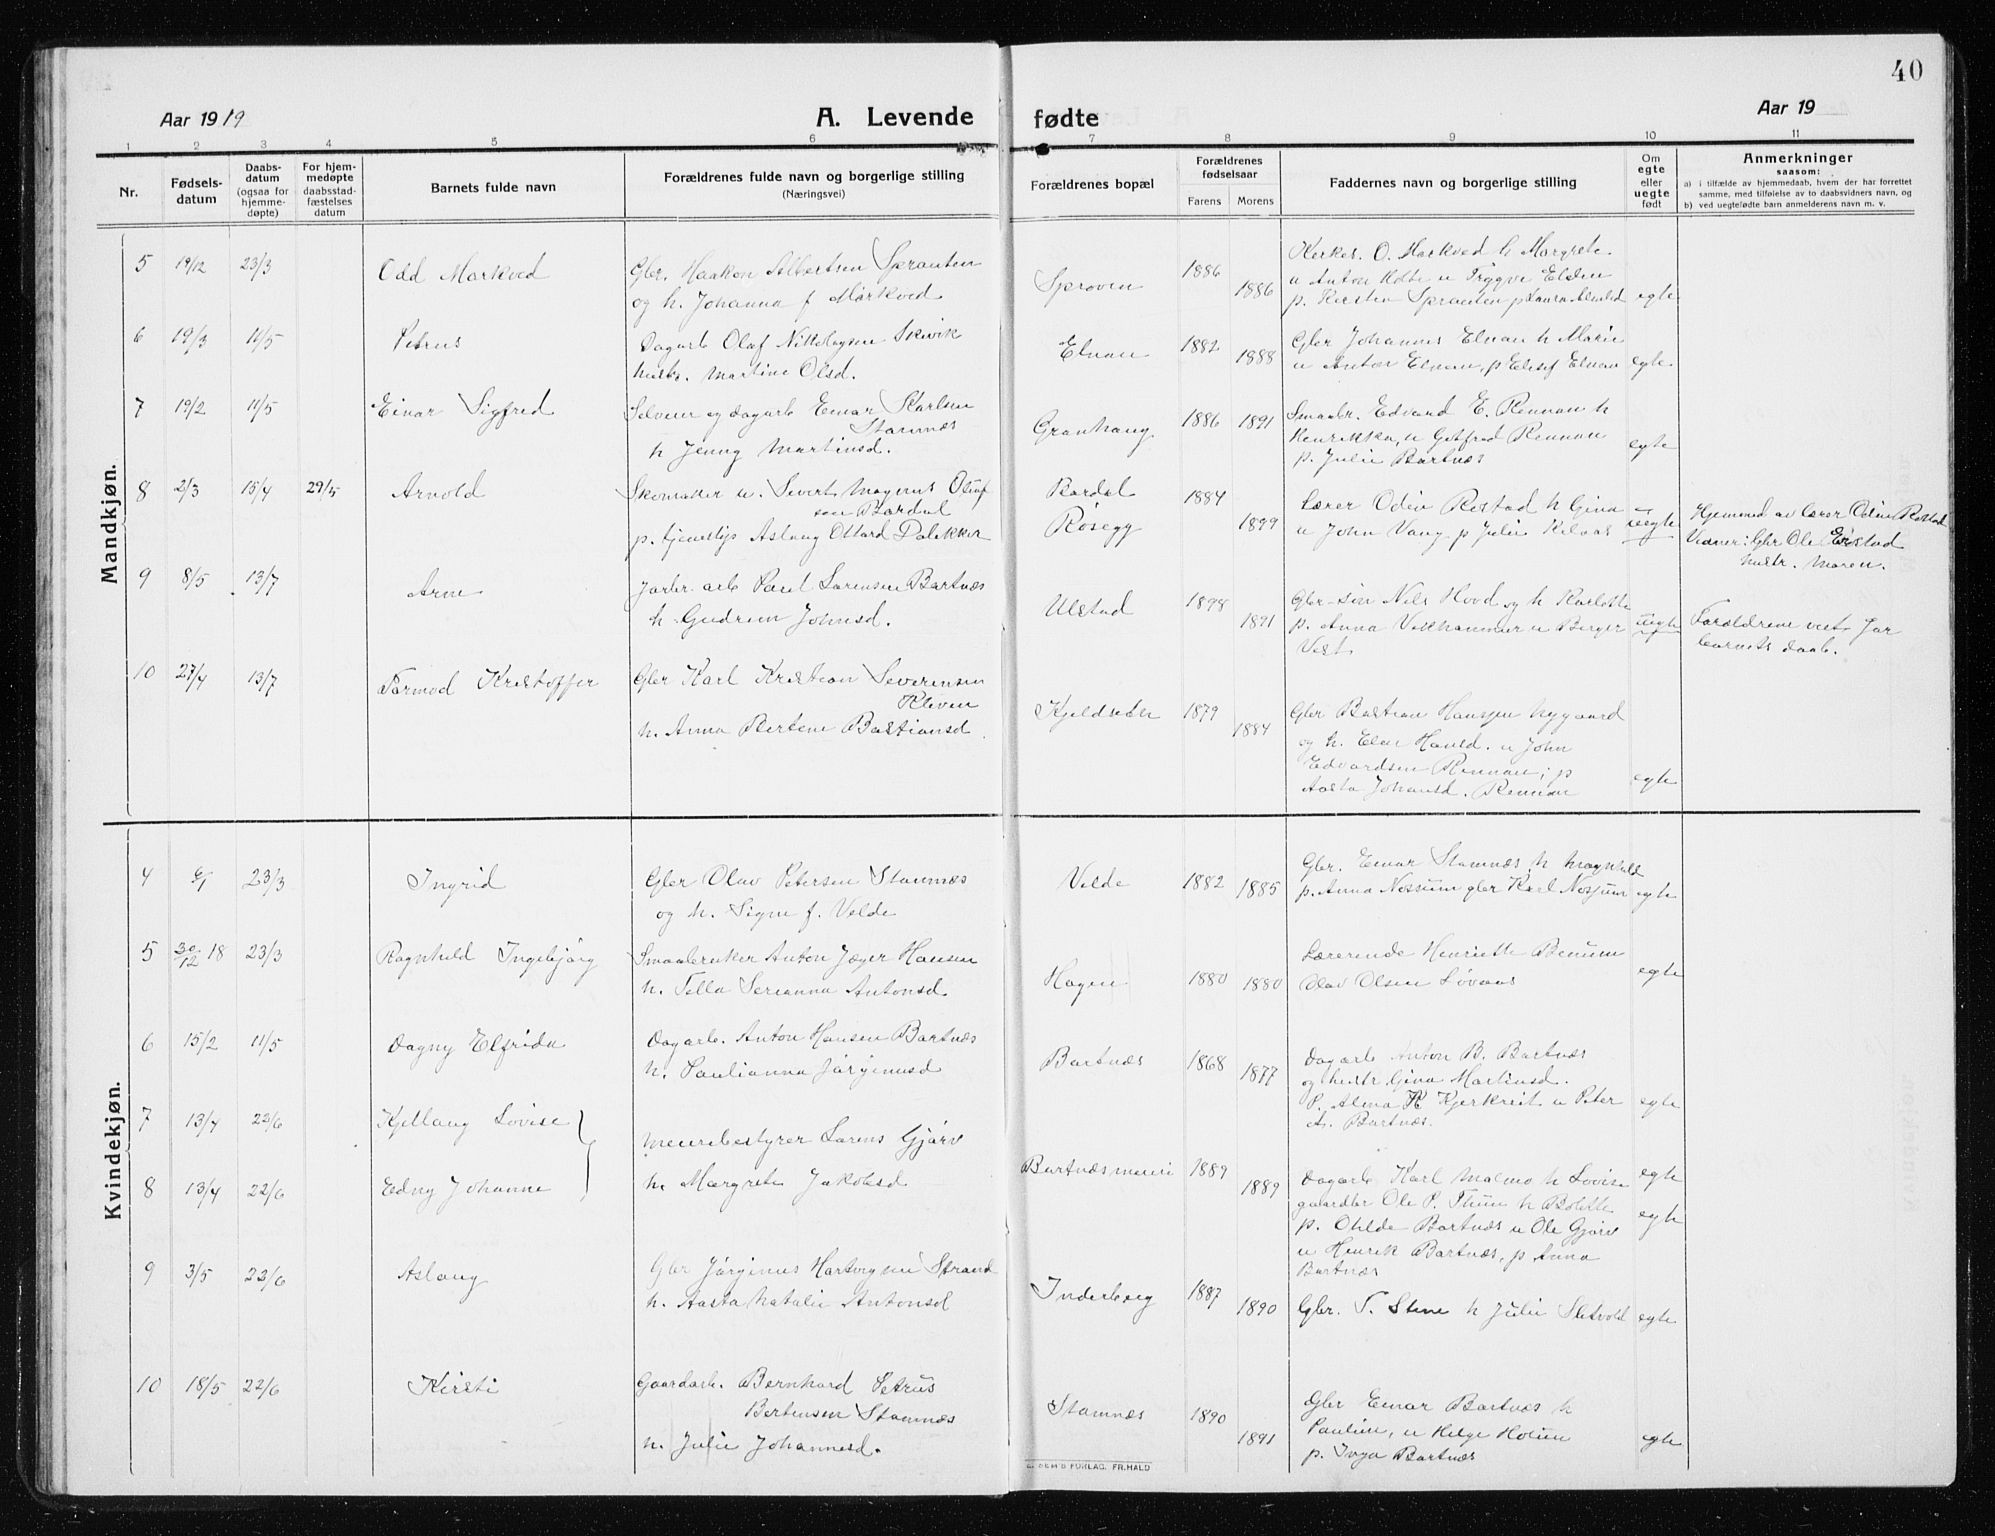 40
Aar 1919
A. Levende fødte
Aar 19
1 2 3 4 5 6 7 8 9 10 11
Nr.
Fødsels-
datum
Daabs-
datum
(ogsaa for
hjemme-
døpte)
For hjem-
medøpte
daabsstad-
fæstelses
datum
Barnets fulde navn
Forældrenes fulde navn og borgerlige stilling
(Næringsvei)
Forældrenes bopæl
Forældrenes
fødselsaar
Farens Morens
Faddernes navn og borgerlige stilling
Om
egte
eller
uegte
født
Anmerkninger
saasom:
a) i tilfælde av hjemmedaab, hvem der har forrettet
samme, med tilføielse av to daabsvidners navn, og
b) ved uegtefødte barn anmelderens navn m. v.
Mandkjøn.
5 19/12 23/3 Odd Markved
Gbr. Haakon Albertsen Sprauten
og h. Johanna f Markved
Sproven 1886 1886
O. Markved h Margrete
u Anton u Trygve Elden
p. Kirsten Sprauten p Laura
egte
6 19/3 11/5 Petrus
Dagarb Olaf Skivik
hustr. Martine Olsd.
Elnan 1882 1888
Gbr Johannes Elnan h Marie
u Anton Elnan, p Elisef Elnan
egte
7 19/2 11/5 Einar Sigfred
Selveier og dagarb Einar Karlsen
Stamnæs
h Jenny Martinsd.
Granhaug 1886 1891
Smaabr. Edvard E. Rennan h
Henrikka, u Gotfred Rennan
p. Julie Bartnæs
egte
8 2/3 15/4 29/5 Arnold
Skomaker u. Sivert Magnus Oluf
sen Bardal
p. tjenestp Aslaug Ottard
Bardal
Røsegg
1884 1899
Lærer Odin Rostad h Gina
u John Vang p Julie
uegte
Hjemmed av lærer Odin Rostad
Vidner: Gbr Ole
hustr. Maren.
9 8/5 13/7 Arne
arb Paul Lorensen Bartnæs
h. Gudrun Johnsd.
Ulstad 1898 1891
Gbr søn Nils Hovd og h Karlotte
p. Anna Vikhammer u Birger
Vist
uegte
Forældrene viet før
barnets daab.
10 27/4 13/7 Tormod Kristoffer
Gbr Karl Kristian Severinsen
Kleven
h. Anna Bertine Bastiansd.
Kjeldsaker 1879 1884
Gbr Bastian Hansen Nygaard
og h. Elen Hansd. u John
Edvardsen Rennan; p
Aasta Johansd. Rennan
egte
Kvindekjøn.
4 23/3 Ingrid
Gbr Olav Petersen Stamnæs
og h. Signe f. Velde
Velde 1882 1885
Gbr. Einar Stamnæs h Magnhild
p. Anna Nossum gbr Karl Nossum
egte
5 30/12 18 23/3 Ragnhild Ingebjørg
Smaabruker Anton Jæger Hansen
h. Tella Serianna Antonsd
Hagen 1880 1880
Lærerinde Henriette Benum
Olav Olsen Løvaas
egte
6 15/2 11/5 Dagny Elfrida
Dagarb. Anton Hansen Bartnæs
h. Paulianna Jørginusd
Bartnæs 1868 1877
Dagarb Anton B. Bartnæs
og hustr Gina Martinsd.
P. Alma Kjerkreit u Peter
A. Bartnæs.
egte
7 13/4 22/6 Kjellaug Lovise
8 13/4 22/6 Edny Johanne
Meieribestyrer Lorens Gjørv
h. Margrete Jakobsd
Bartnæs meieri 1889 1889
Dagarb Karl Malmo h Lovise
gaardbr Ole P. Thun h Bolette
p. Olilde Bartnæs u Ole Gjørv
u Henrik Bartnæs, p Anna
Bartnæs
egte
egte
9 3/5 22/6 Aslaug
Gbr Jørginus Hartvigsen Strand
h. Aasta Natalie Antonsd
Inderberg 1887 1890
Gbr. T. Stene h Julie Sletvold
egte
10 18/5 22/6 Kirsti
Gaardarb. Bernhard Petrus
Bertinsen Stamnæs
h. Julie Johannesd.
Stamnæs 1890 1891
Gbr Einar Bartnæs h
Pauline, u Helge Holum
p. Inga Bartnæs
egte
FORLAG. FR.HALD